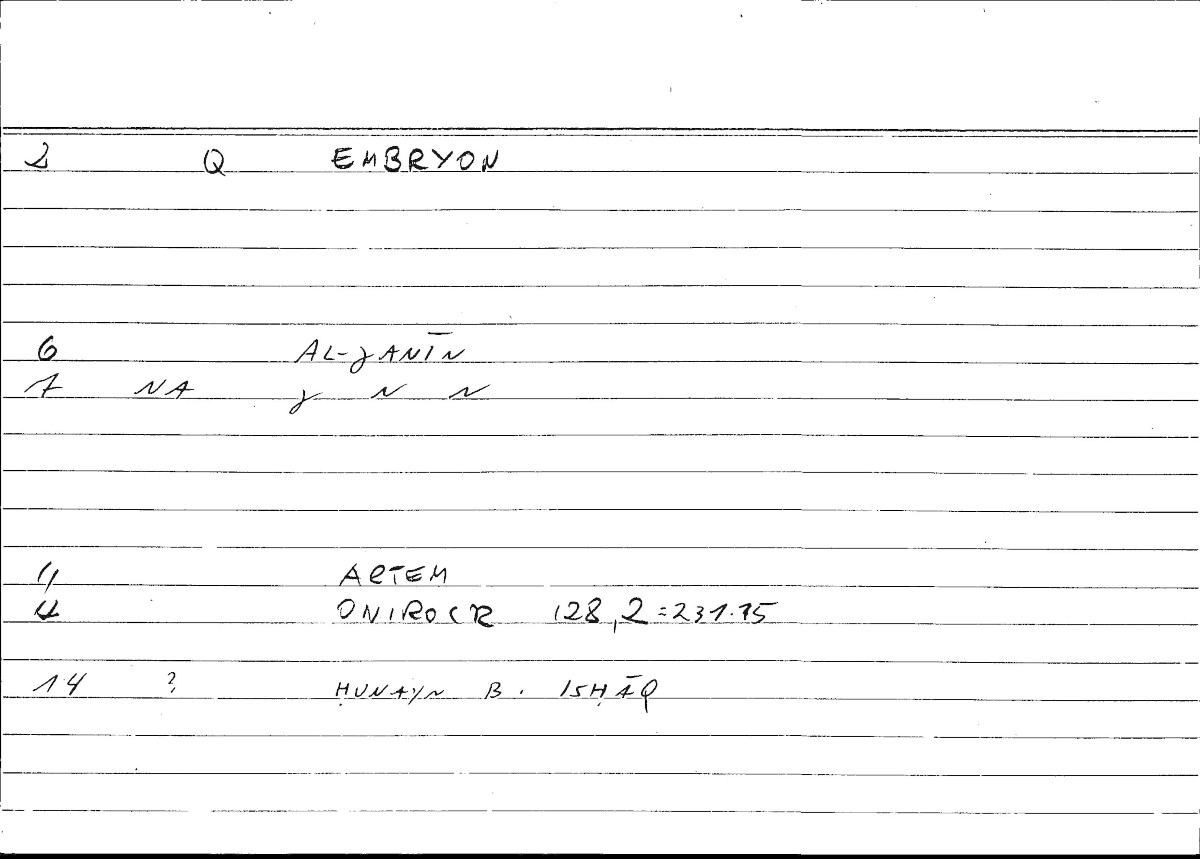 2 Q EMBRYON
6 AL-ǧANĪN
7 NA ǧ N N
11 ARTEM
4 ONIROCR 128,2=231.15
14 ? ḤUNAYN B. ISḤĀQ